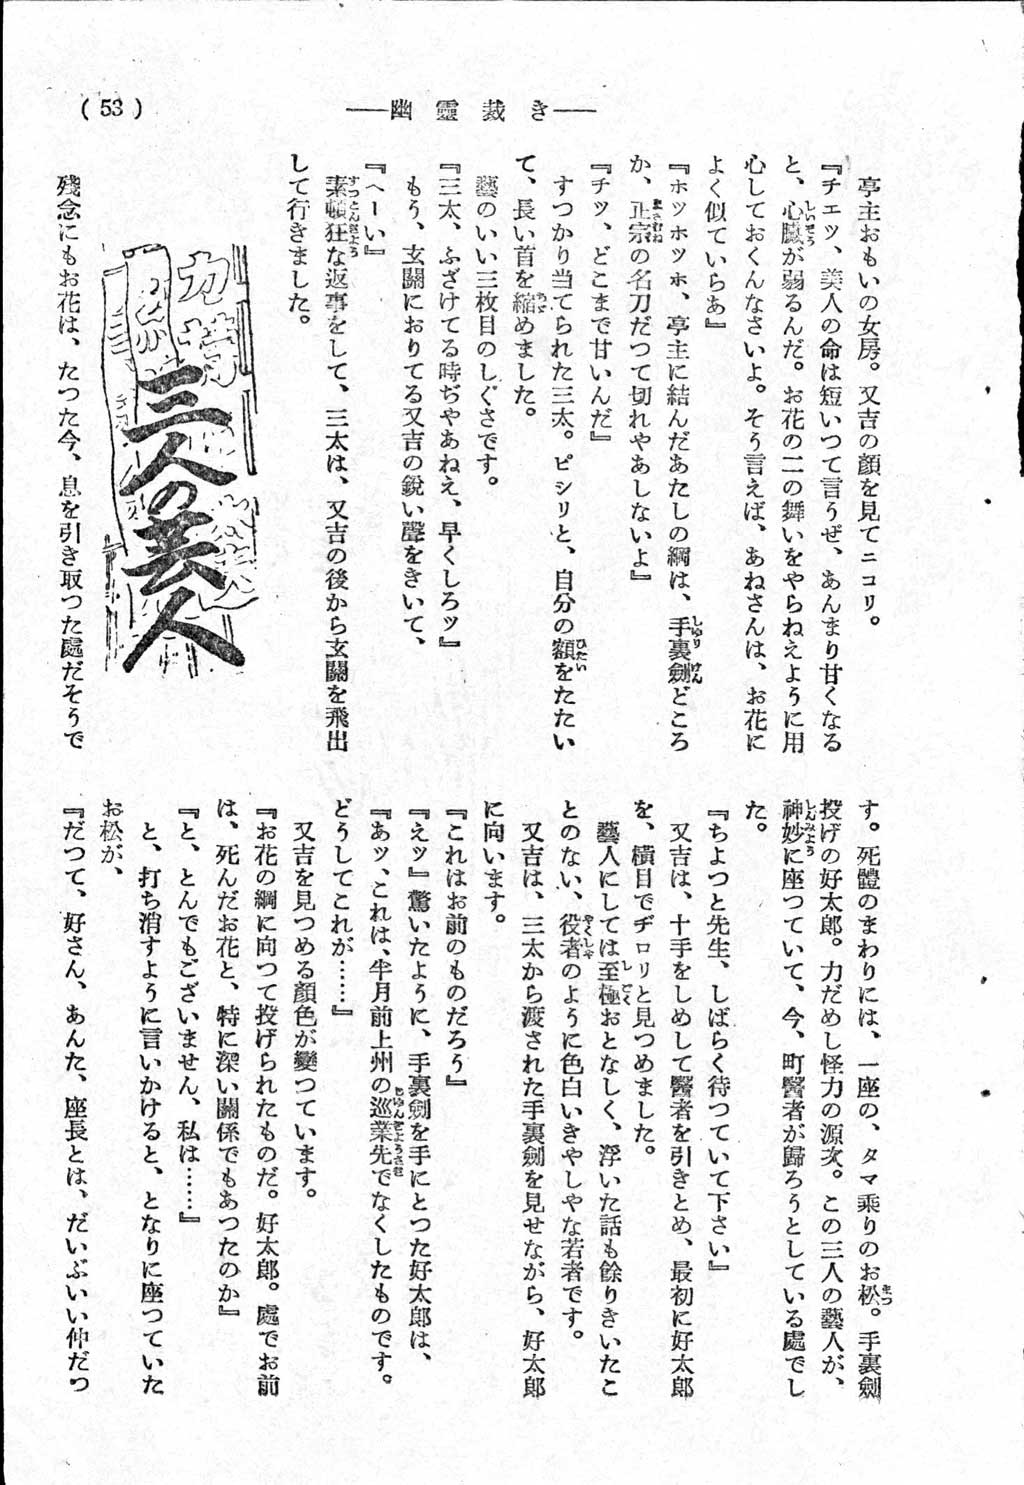 (53)
――幽靈裁き――
亭主おもいの女房。又吉の顏を見てニコリ。
『チエツ、美人の命は短いつて言うぜ、あんまり甘くなる
と、心臟が弱るんだ。お花の二の舞いをやらねえように用
心しておくんなさいよ。そう言えば、あねさんは、お花に
よく似ていらあ』
『ホツホツホ、亭主に結んだあたしの綱は、手裏劍どころ
か、正宗の名刀だつて切れやあしないよ』
『チツ、どこまで甘いんだ』
すつかり当てられた三太。ピシリと、自分の額をたたい
て、長い首を縮めました。
藝のいい三枚目のしぐさです。
『三太、ふざけてる時ぢやあねえ、早くしろッ』
もう、玄關におりてる又吉の鋭い聲をきいて、
『へーい』
素頓狂な返事をして、三太は、又吉の後から玄關を飛出
して行きました。
三人の芸人
殘念にもお花は、たつた今、息を引き取つた處だそうで
す。死體のまわりには、一座の、タマ乘りのお松。手裏劍
投げの好太郎。力だめし怪力の源次。この三人の藝人が、
神妙に座つていて、今、町醫者が歸ろうとしている處でし
た。
『ちよつと先生、しばらく待つていて下さい』
又吉は、十手をしめして醫者を引きとめ、最初に好太郎
を、横目でヂロリと見つめました。
藝人にしては至極おとなしく、浮いた話も餘りきいたこ
とのない、役者のように色白いきやしやな若者です。
又吉は、三太から渡された手裏劍を見せながら、好太郎
に向います。
『これはお前のものだろう』
『えッ』驚いたように、手裏劍を手にとつた好太郎は、
『あッ、これは、半月前上州の巡業先でなくしたものです。
どうしてこれが……』
又吉を見つめる顏色が變つています。
『お花の綱に向つて投げられたものだ。好太郎。處でお前
は、死んだお花と、特に深い關係でもあつたのか』
『と、とんでもございません、私は……』
と、打ち消すように言いかけると、となりに座つていた
お松が、
『だつて、好さん、あんた、座長とは、だいぶいい仲だつ